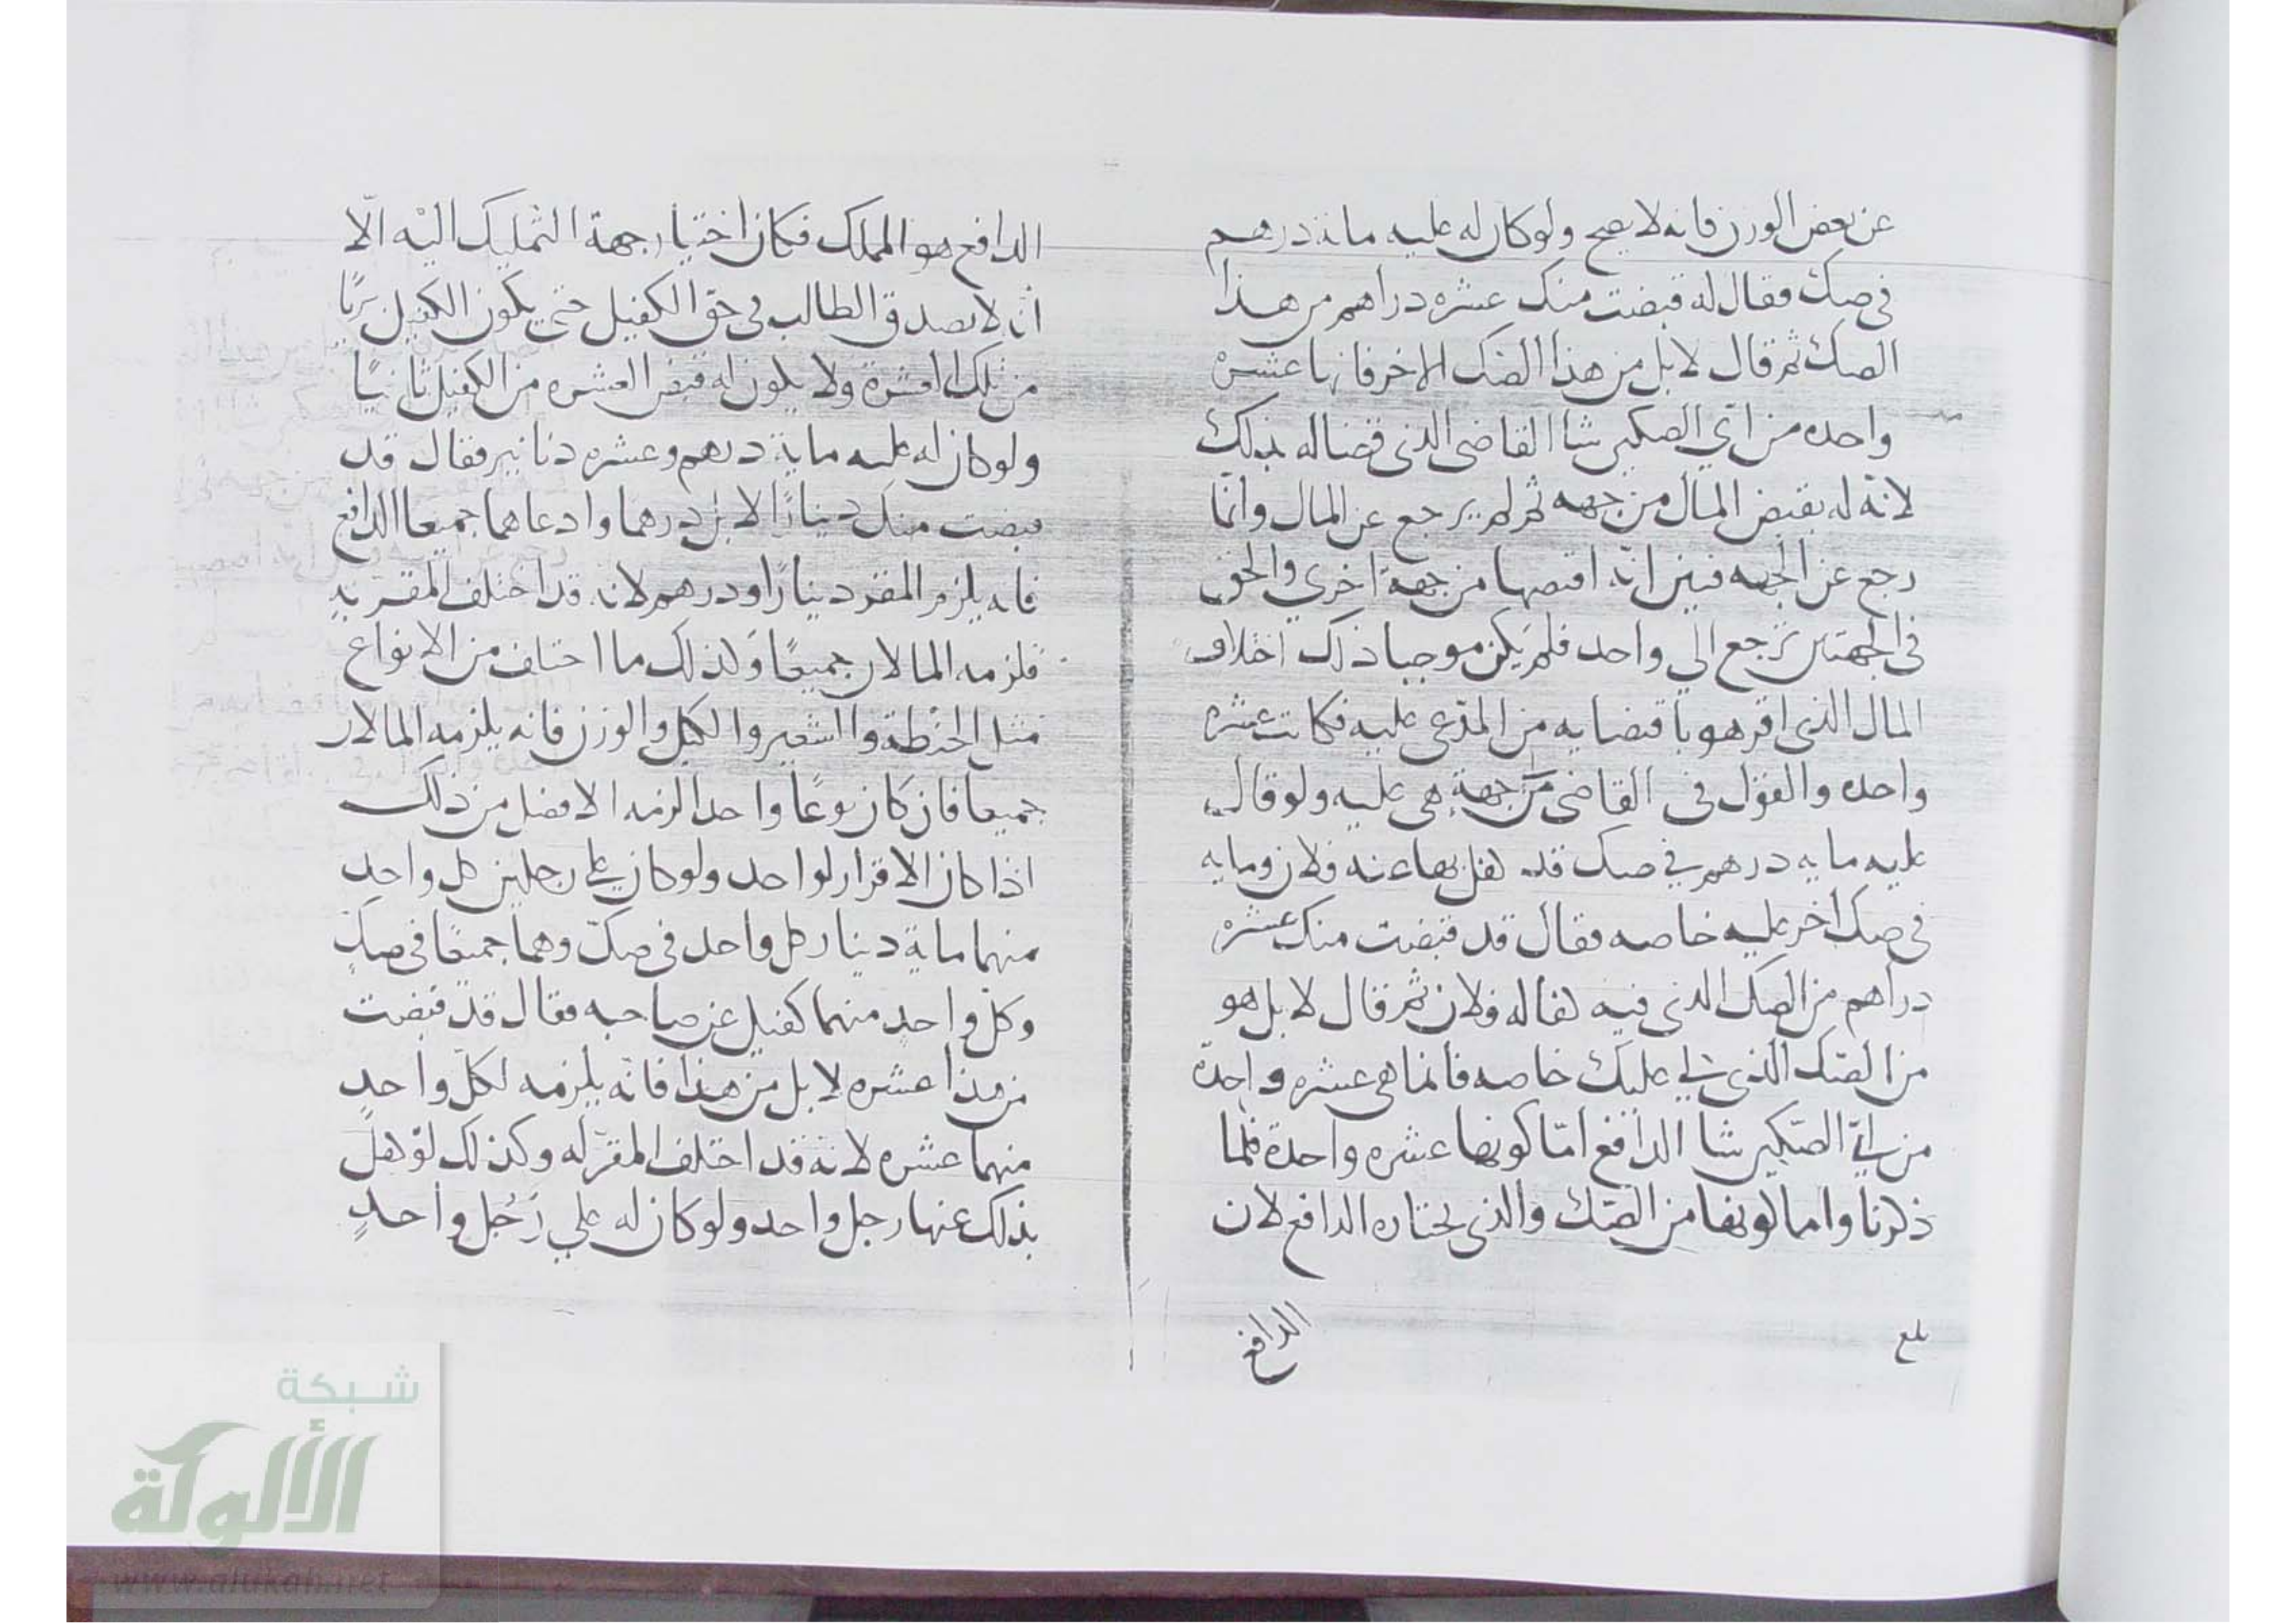 عن بعض الوزن فانه لا يصح ولو كان له عليه مائة درهم
في صك فقال له قبضت منك عشره دراهم من هذا
الصك ثم قال لا بل من هذا الصك الاخر فانها عشرة
واحده من اي الصكين شا القاضي الذي قضاله بذلك
لانه له بقبض المال من جهه ثم لم يرجع عن المال وانما
رجع عن الجهه فبين انه اقتضاها من جهة اخري والحق
في الجهتين ترجع الي واحد فلم يكن موجبا ذلك اختلاف
المال الذي اقر هو باقتضايه من المدعي عليه فكانت عشره
واحده والقول في القاضي من جهة هي عليه ولو قال
عليه مايه درهم في صك قد كفل بها عنه فلان ومايه
في صك اخر عليه خاصه فقال قد قبضت منك عشره
دراهم من الصك الذي فيه كفاله فلان ثم قال لا بل هو
من الصك الذي لي عليك خاصه فانما هي عشره واحدة
من اي الصكين شا الدافع اما كونها عشره واحدة فلما
ذكرنا واما كونها من الصك والذي يختاره الدافع لان
الدافع
بلغ
الدافع هو المملك فكان اختيار جهة التمليك اليه الا
انه لا يصدق الطالب في حق الكفيل حتي يكون الكفيل بريًا
من تلك العشرة ولا يكون له قبض العشره من الكفيل ثانيًا
ولو كان له عليه ماية درهم وعشره دنانير فقال قد
قبضت منك دينارًا لا بل درهما وادعاهما جميعا الدافع
فانه يلزم المقر دينارًا ودرهم لانه قد اختلف المقر به
فلزمه المالان جميعًا وكذلك ما اختلف من الانواع
مثل الحنطة والشعير والكيل والوزن فانه يلزمه المالان
جميعا فان كان نوعًا واحدا لزمه الافضل من ذلك
اذا كان الاقرار لواحد ولو كان علي رجلين كل واحد
منهما ماية دينار كل واحد في صك وهما جميعًا في صك
وكل واحد منهما كفيل عن صاحبه فقال قد قبضت
من هذا عشره لا بل من هذا فانه يلزمه لكل واحد
منهما عشره لانه قد اختلف المقر له وكذلك لو كفل
بذلك عنها رجل واحد ولو كان له علي رجل واحد
شبكة
الألوكة
www.alukah.net